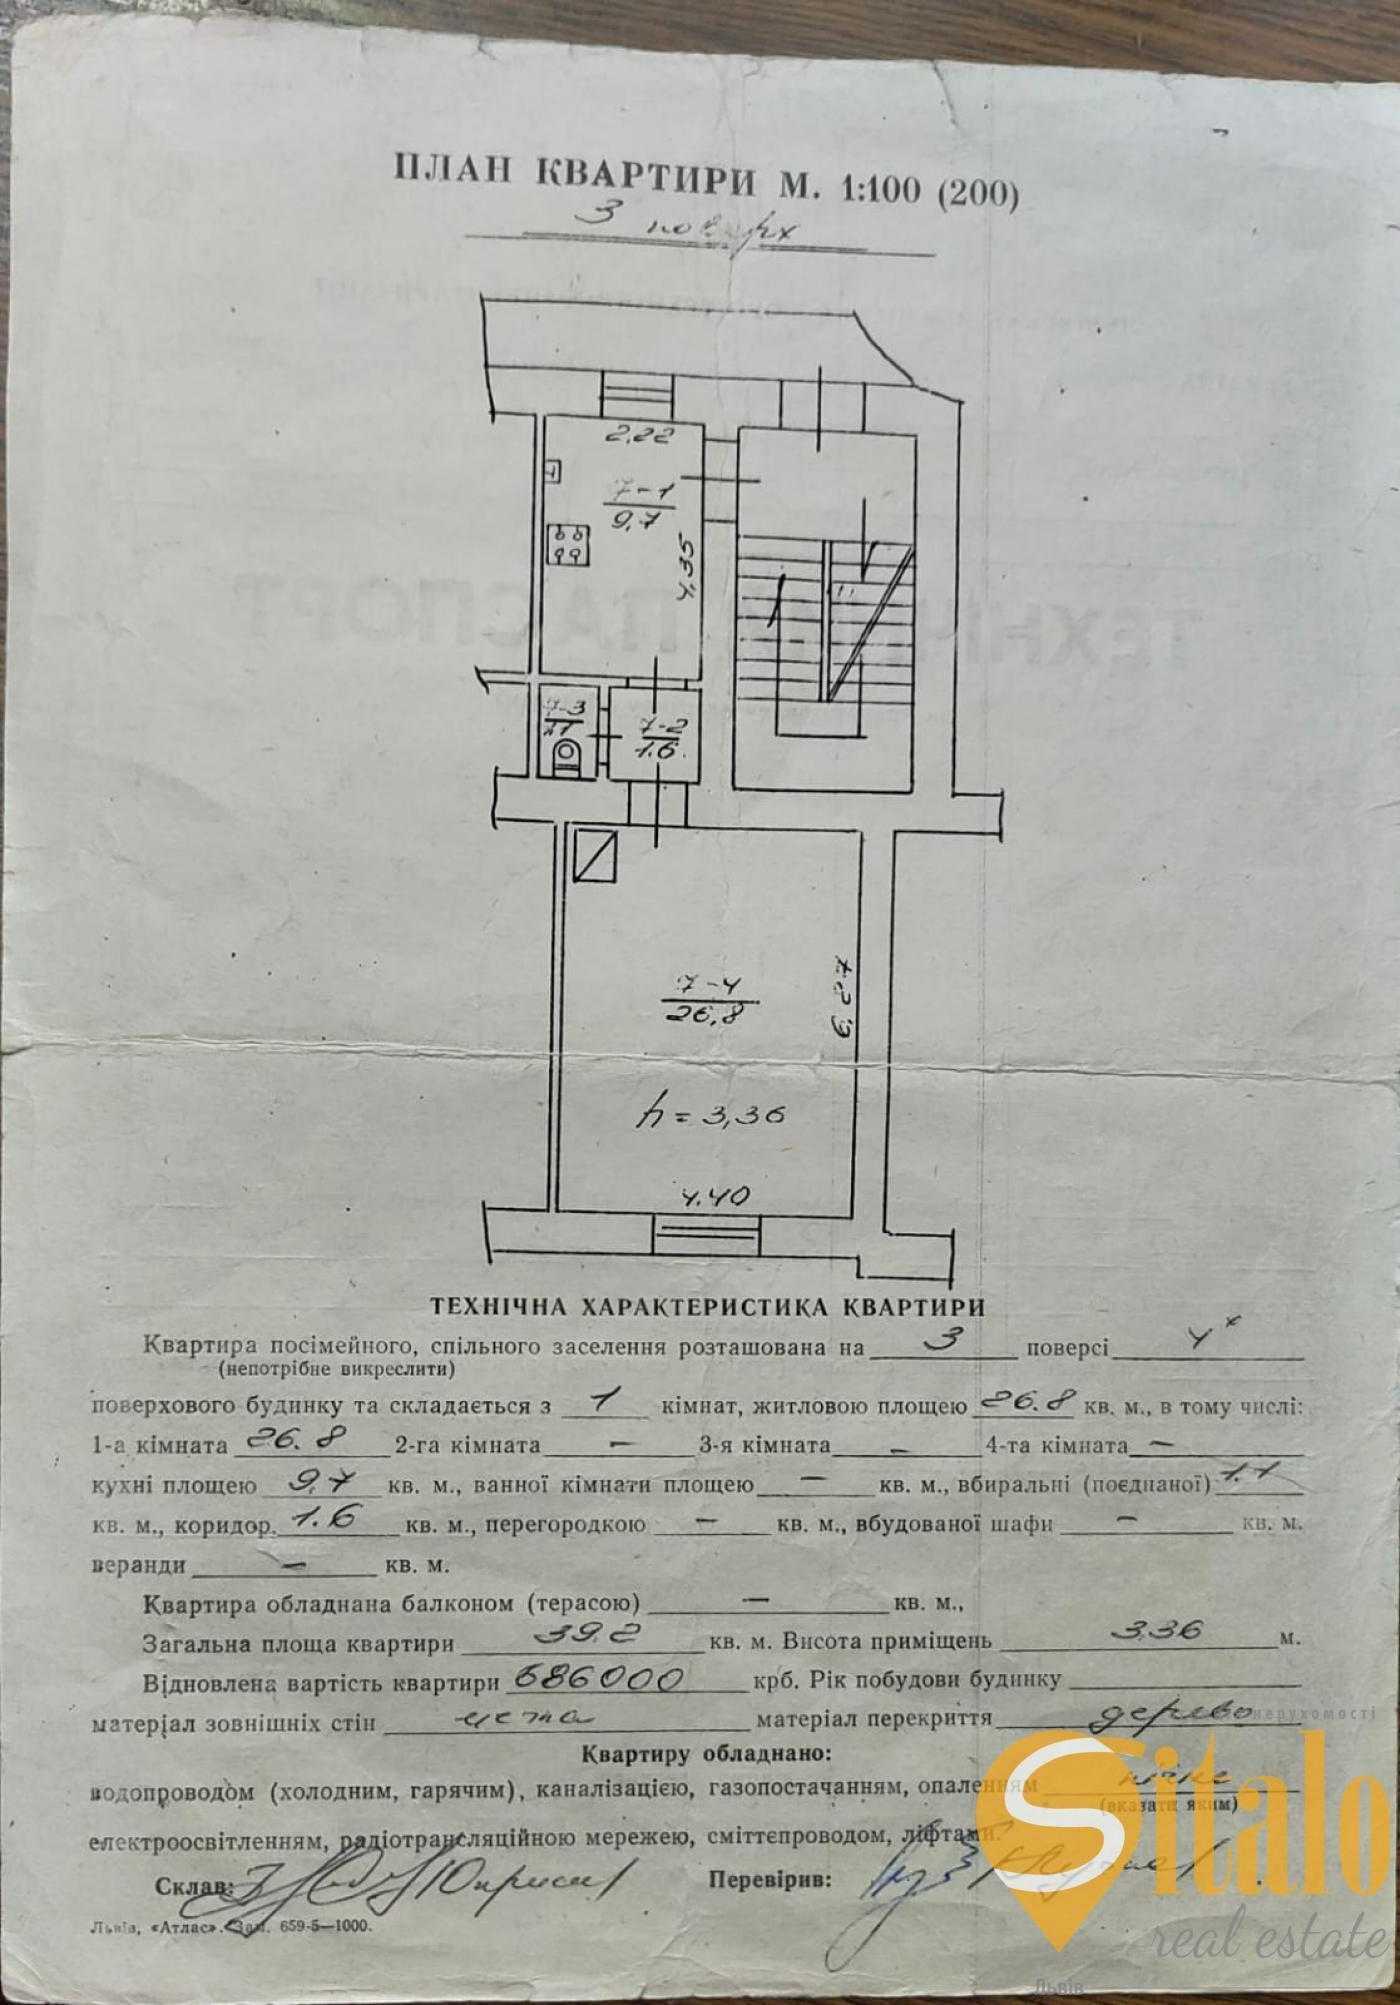 ПЛАН КВАРТИРИ М. 1:100 (200)
3 поверх
2,22
7-1
9,7
4,35
7-3
1.1
7-2
1.6
7-4
26,8
6,27
h = 3,36
4.40
ТЕХНІЧНА ХАРАКТЕРИСТИКА КВАРТИРИ
Квартира посімейного, спільного заселення розташована на 3 поверсі 4х
(непотрібне викреслити)
поверхового будинку та складається з 1 кімнат, житловою площею 26.8 кв. м., в тому числі:
1-а кімната 26.8 2-га кімната — 3-я кімната — 4-та кімната —
кухні площею 9,7 кв. м., ванної кімнати площею — кв. м., вбиральні (поєднаної) 1.1
кв. м., коридор. 1.6 кв. м., перегородкою — кв. м., вбудованої шафи — кв. м.
веранди — кв. м.
Квартира обладнана балконом (терасою) — кв. м.,
Загальна площа квартири 39.2 кв. м. Висота приміщень 3.36 м.
Відновлена вартість квартири 686000 крб. Рік побудови будинку
матеріал зовнішніх стін цегла матеріал перекриття дерево
Квартиру обладнано:
водопроводом (холодним, гарячим), каналізацією, газопостачанням, опаленням пічне
(вказати яким)
електроосвітленням, радіотрансляційною мережею, сміттєпроводом, ліфтами.
Склав:
Перевірив:
Львів, «Атлас». Зам. 659-5—1000.
нерухомості
Sitalo
real estate
Львів